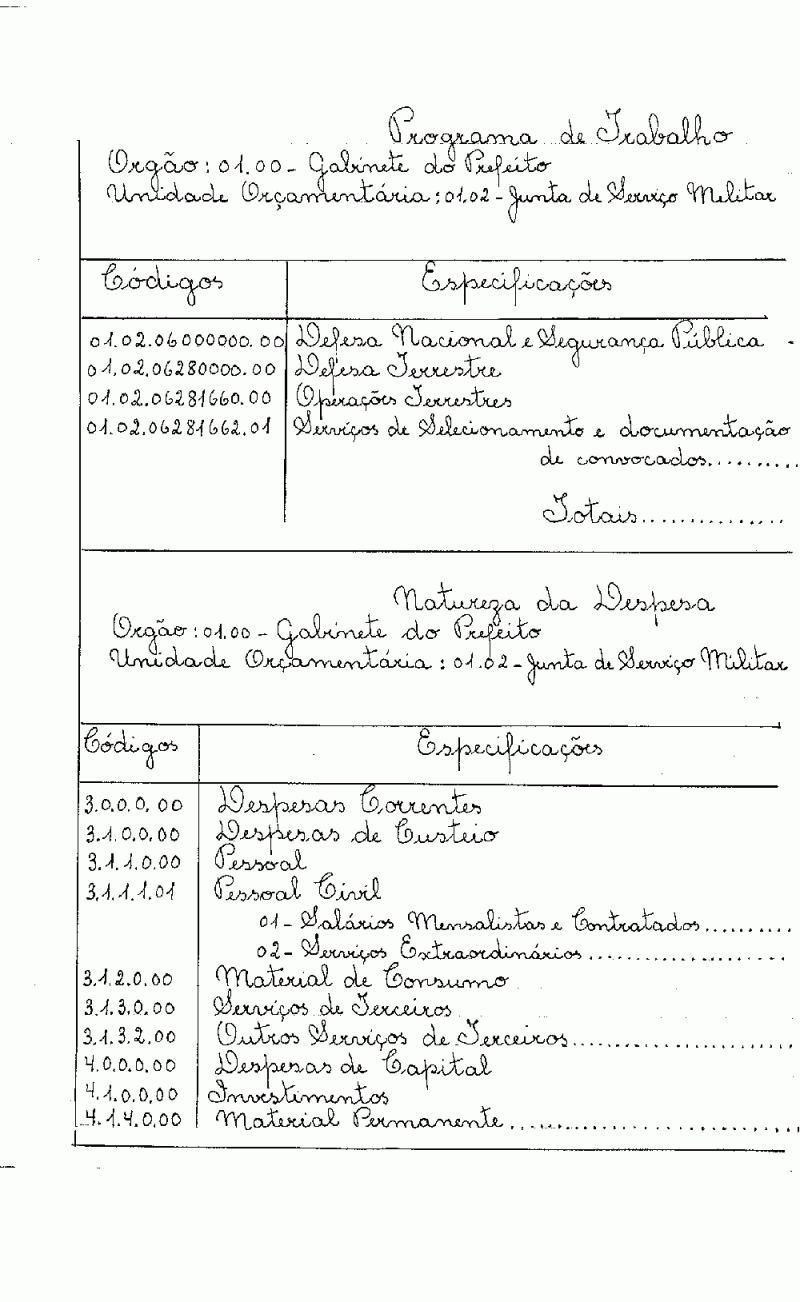 Programa de Trabalho
Orgão: 01.00 - Gabinete do Prefeito
Unidade Orçamentária: 01.02 - Junta de Serviço Militar
Códigos Especificações
01.02.06000000.00 Defesa Nacional e Segurança Pública -
01.02.06280000.00 Defesa Terrestre
01.02.06281660.00 Operações Terrestres
01.02.06281662.01 Serviços de Selecionamento e documentação
de convocados..........
Totais...............
Natureza da Despesa
Orgão: 01.00 - Gabinete do Prefeito
Unidade Orçamentária: 01.02 - Junta de Serviço Militar
Códigos Especificações
3.0.0.0.00 Despesas Correntes
3.1.0.0.00 Despesas de Custeio
3.1.1.0.00 Pessoal
3.1.1.1.01 Pessoal Civil
01 - Salários Mensalistas e Contratados..........
02 - Serviços Extraordinários....................
3.1.2.0.00 Material de Consumo
3.1.3.0.00 Serviços de Terceiros
3.1.3.2.00 Outros Serviços de Terceiros......................
4.0.0.0.00 Despesas de Capital
4.1.0.0.00 Investimentos
4.1.4.0.00 Material Permanente..............................